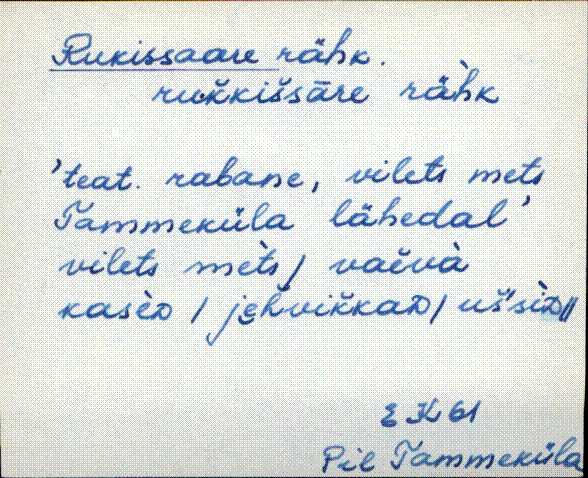 Rukissaare rähk.
rukkišsāre rähk
'teat. rabane, vilets mets
Tammeküla lähedal'
vilets mets / vaevà
kasèD / jehvikkaD / uš'siD //
EK 61
Pil Tammeküla